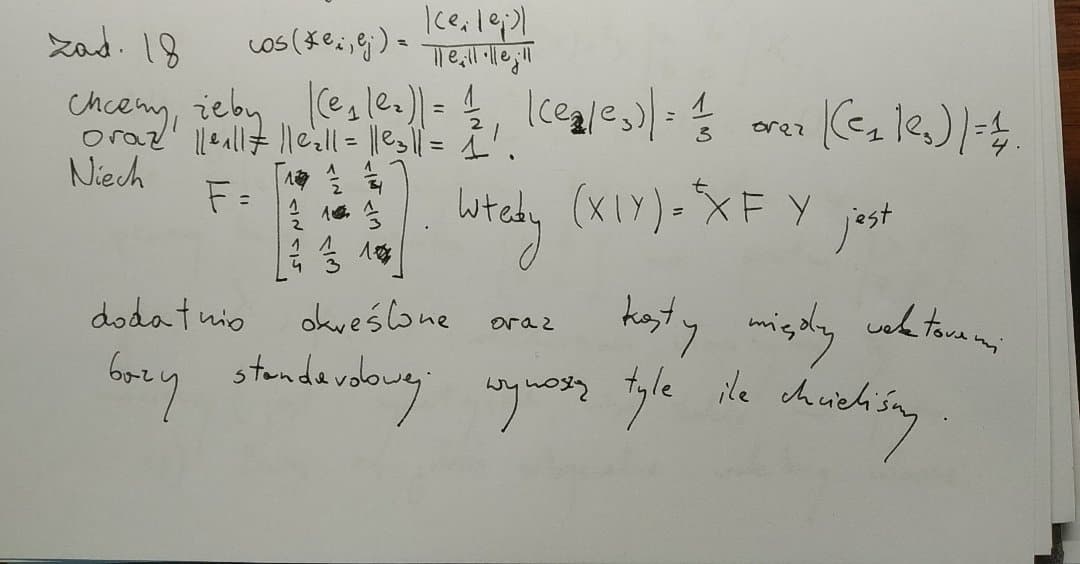 zad. 18 cos(∡e_i,e_j) = |(e_i|e_j)| / ||e_i||·||e_j||
chcemy, żeby |(e_1|e_2)| = 1/2, |(e_2|e_3)| = 1/3 oraz |(e_1|e_3)| = 1/4.
oraz ||e_1|| = ||e_2|| = ||e_3|| = 1.
Niech F = [1 1/2 1/4
1/2 1 1/3
1/4 1/3 1]. Wtedy (X|Y) = ᵗX F Y jest
dodatnio określone oraz kąty między wektorami
bazy standardowej wynoszą tyle ile chcieliśmy.